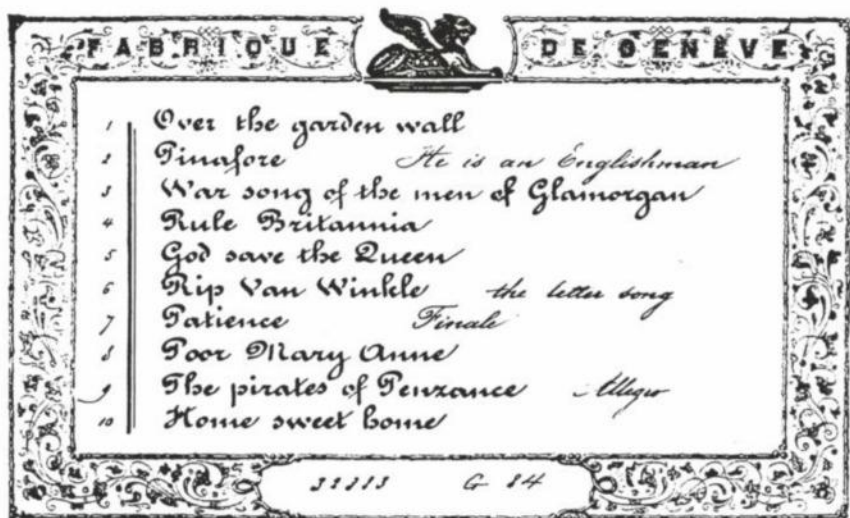 FABRIQUE DE GENÈVE
1 Over the garden wall
2 Pinafore He is an Englishman
3 War song of the men of Glamorgan
4 Rule Britannia
5 God save the Queen
6 Rip Van Winkle the letter song
7 Patience Finale
8 Poor Mary Anne
9 The pirates of Penzance Allegro
10 Home sweet home
G 84